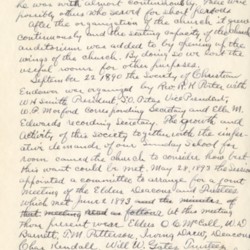 he was with almost continuously. There were
possibly others who served for short periods.
After the organization of the church it grew
continuously and the seating capacity of the church
auditorium was added to by opening up the
wings of the church. By doing so we lost the
useful rooms for other purposes.
September 22, 1890 the Society of Christian
Endeavor was organized by Rev. R. R. Pates, with
W H Smith President, S. O. Pates Vice President,
W F Morford Corresponding Secretary and Ella M.
Edwards Recording Secretary. The growth and
activity of this society together with the imper-
ative demands of our Sunday School for
room caused the church to consider how best
this want could be met. May 28, 1893 the session
appointed a committee to arrange for a joint
meeting of the Elders Deacons and Trustees
which met June 2 1893 and the minutes of
that meeting read as follows: At this meeting
there present were, Elders O C McCall, W. D.
Barnett, D. M. Patterson, Irving Drew, Deacons
Chas Kendall, Will W. Gates, Trustees